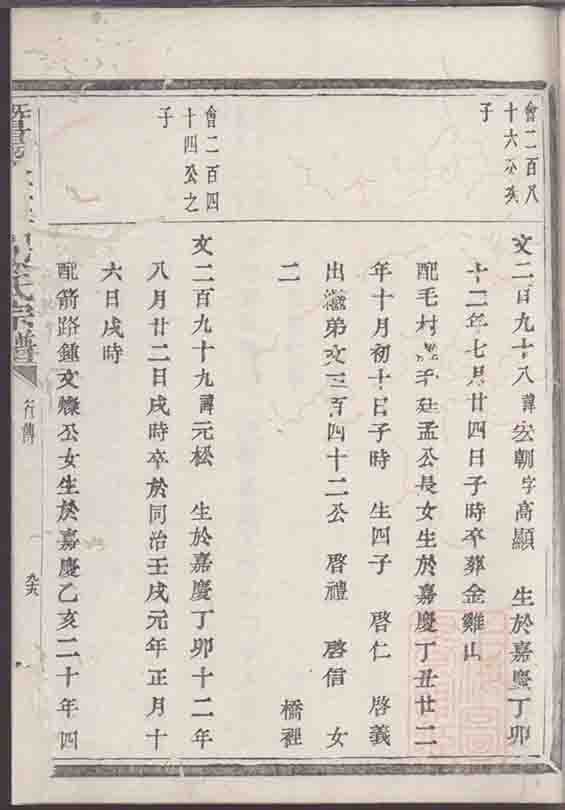 會二百八
十六公亥
子
文二百九十八諱宏朝字高顯 生於嘉慶丁卯
十二年七月廿四日子時卒葬金雞山
配毛村 廷孟公長女生於嘉慶丁丑廿二
年十月初十日子時 生四子 啓仁 啓義
出繼弟文三百四十二公 啓禮 啓信 女
二 橋裡
會二百四
十四公之
子
文二百九十九諱元松 生於嘉慶丁卯十二年
八月廿二日戌時卒於同治壬戌元年正月十
六日戌時
配箭路鍾文燦公女生於嘉慶乙亥二十年四
暨陽 氏宗譜
行傳